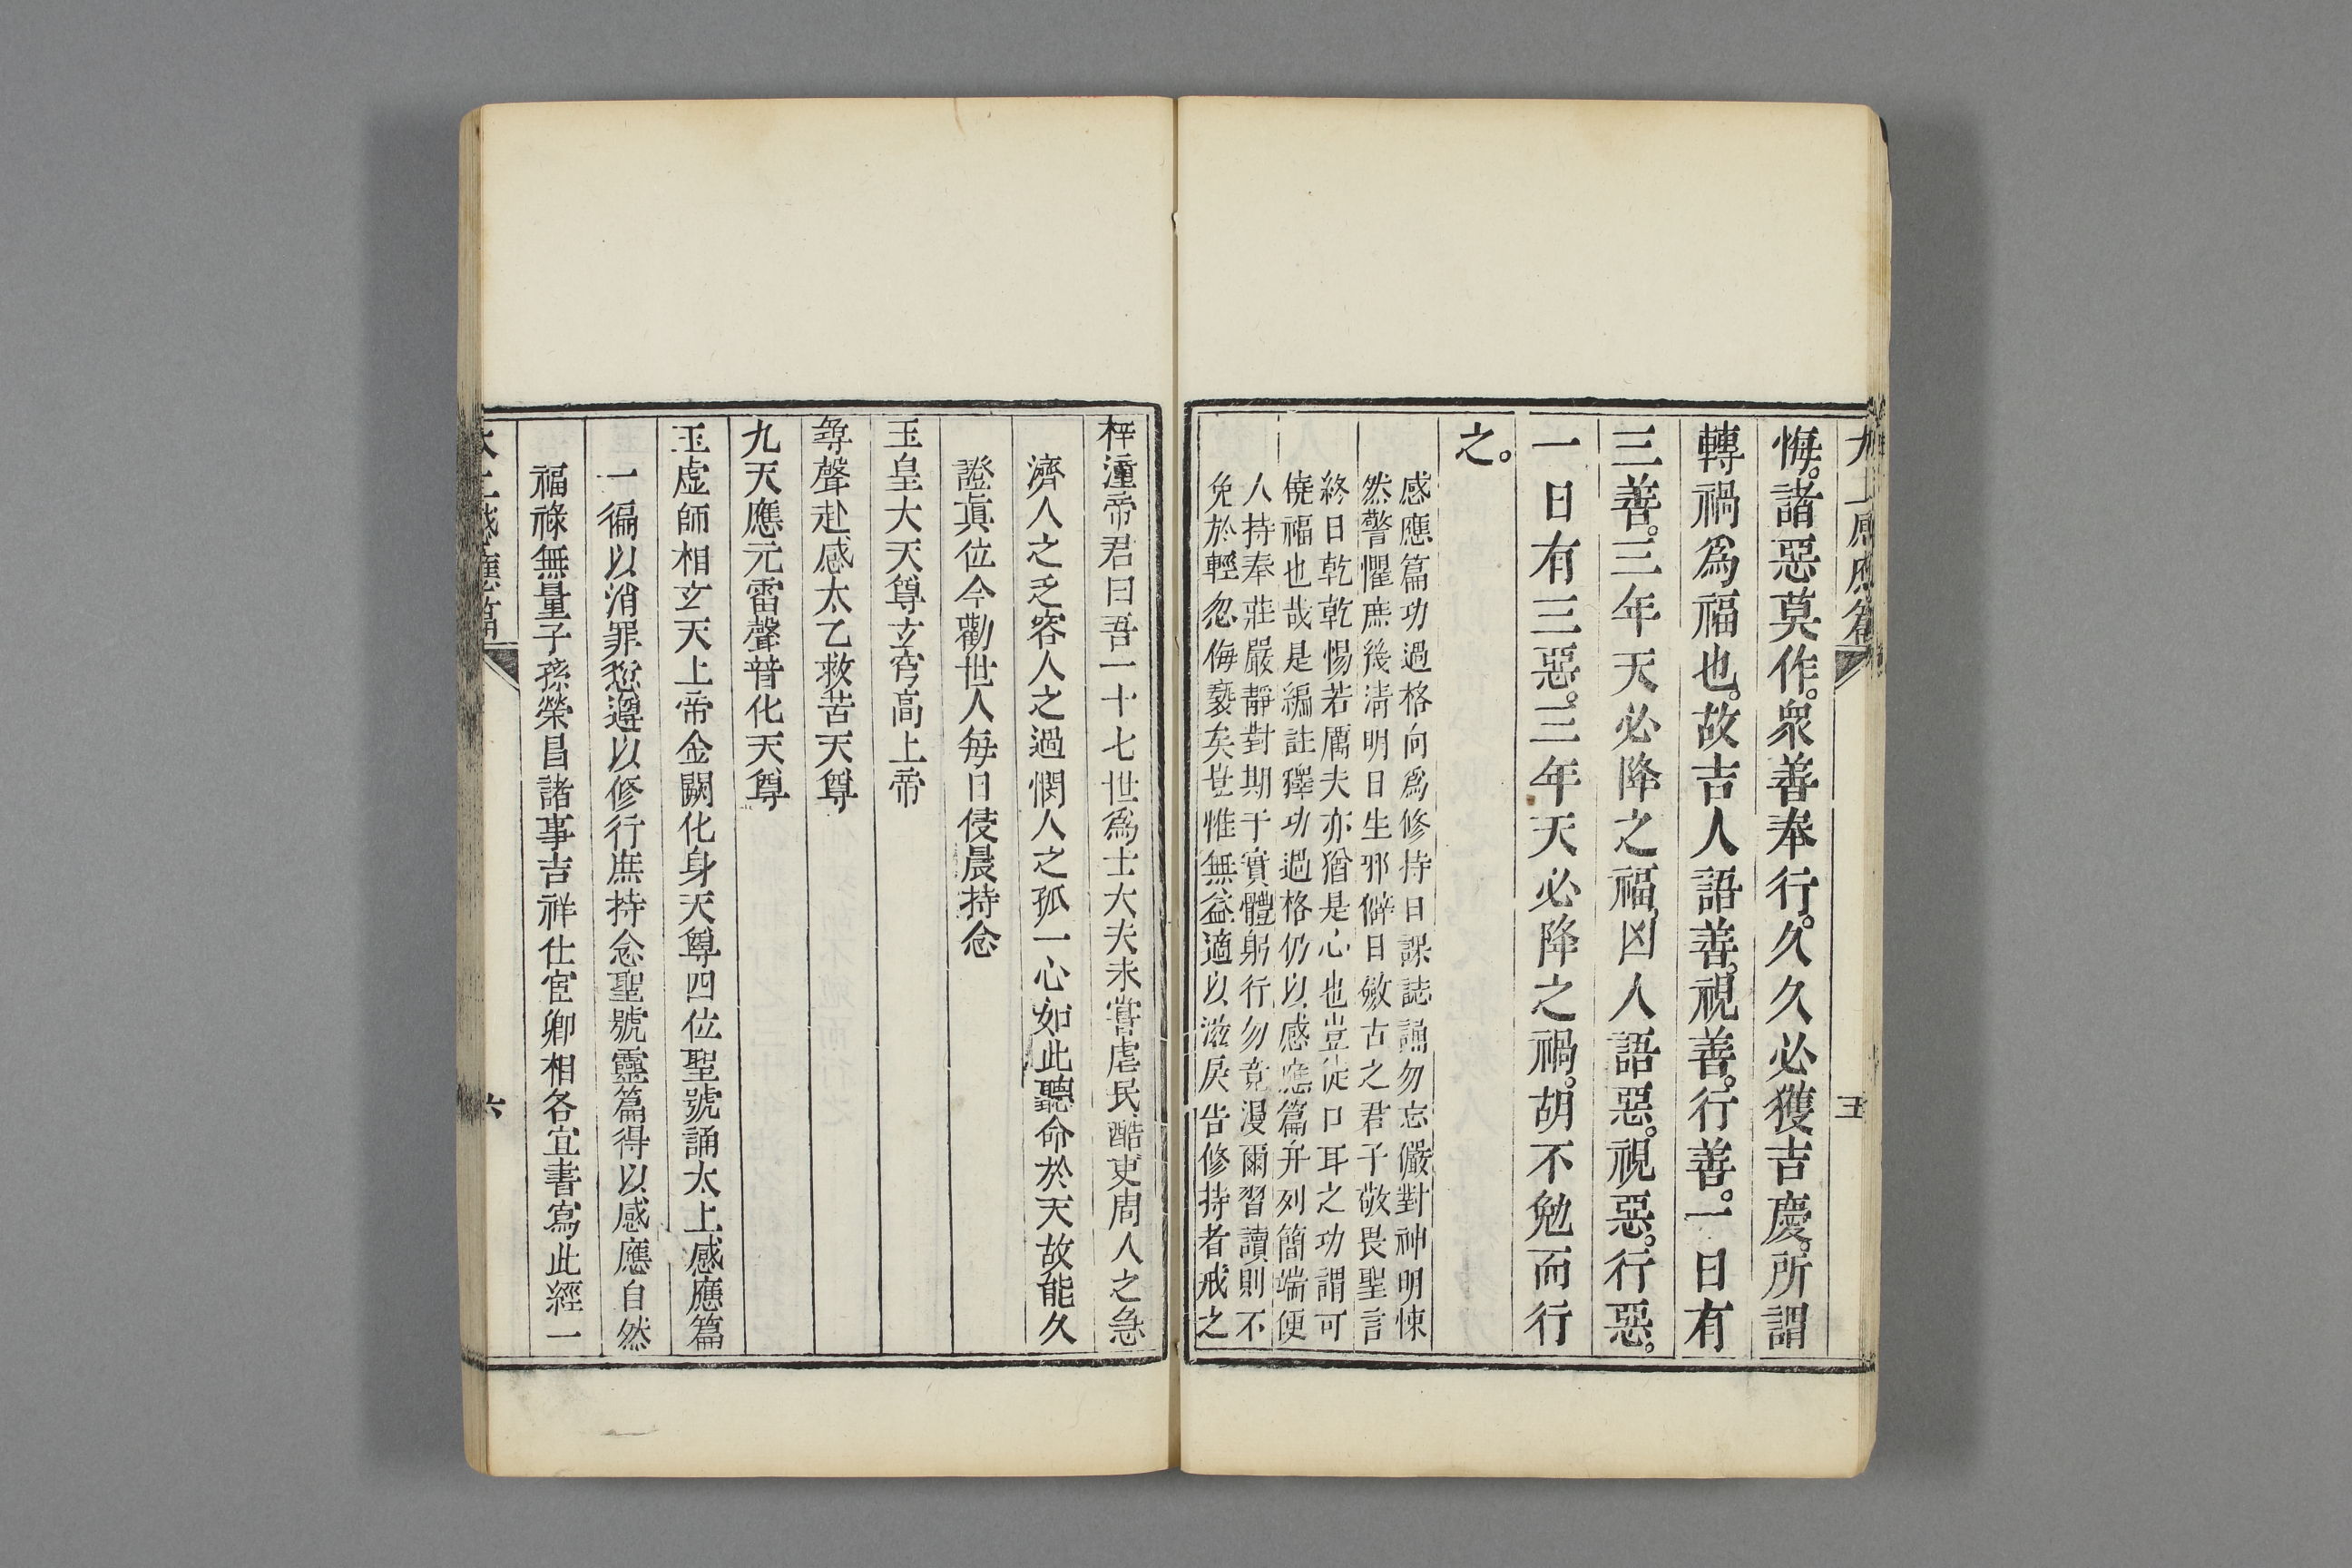 太上感應篇
五
悔。諸惡莫作。衆善奉行。久久必獲吉慶。所謂
轉禍爲福也。故吉人語善。視善。行善。一日有
三善。三年天必降之福。凶人語惡。視惡。行惡。
一日有三惡。三年天必降之禍。胡不勉而行
之。
感應篇功過格向爲修持日課誌誦勿忘儼對神明悚
然警懼庶幾淸明日生邪僻日斂古之君子敬畏聖言
終日乾乾惕若厲夫亦猶是心也豈徒口耳之功謂可
僥福也哉是編註釋功過格仍以感應篇弁列簡端便
人持奉莊嚴靜對期于實體躬行勿竟漫爾習讀則不
免於輕忽侮褻矣豈惟無益適以滋戾告修持者戒之
梓潼帝君曰吾一十七世爲士大夫未嘗虐民酷吏周人之急
濟人之乏容人之過憫人之孤一心如此聽命於天故能久
證眞位今勸世人每日侵晨持念
玉皇大天尊玄穹高上帝
尋聲赴感太乙救苦天尊
九天應元雷聲普化天尊
玉虛師相玄天上帝金闕化身天尊四位聖號誦太上感應篇
一徧以消罪愆遵以修行庶持念聖號靈篇得以感應自然
福祿無量子孫榮昌諸事吉祥仕宦卿相各宜書寫此經一
太上感應篇
六